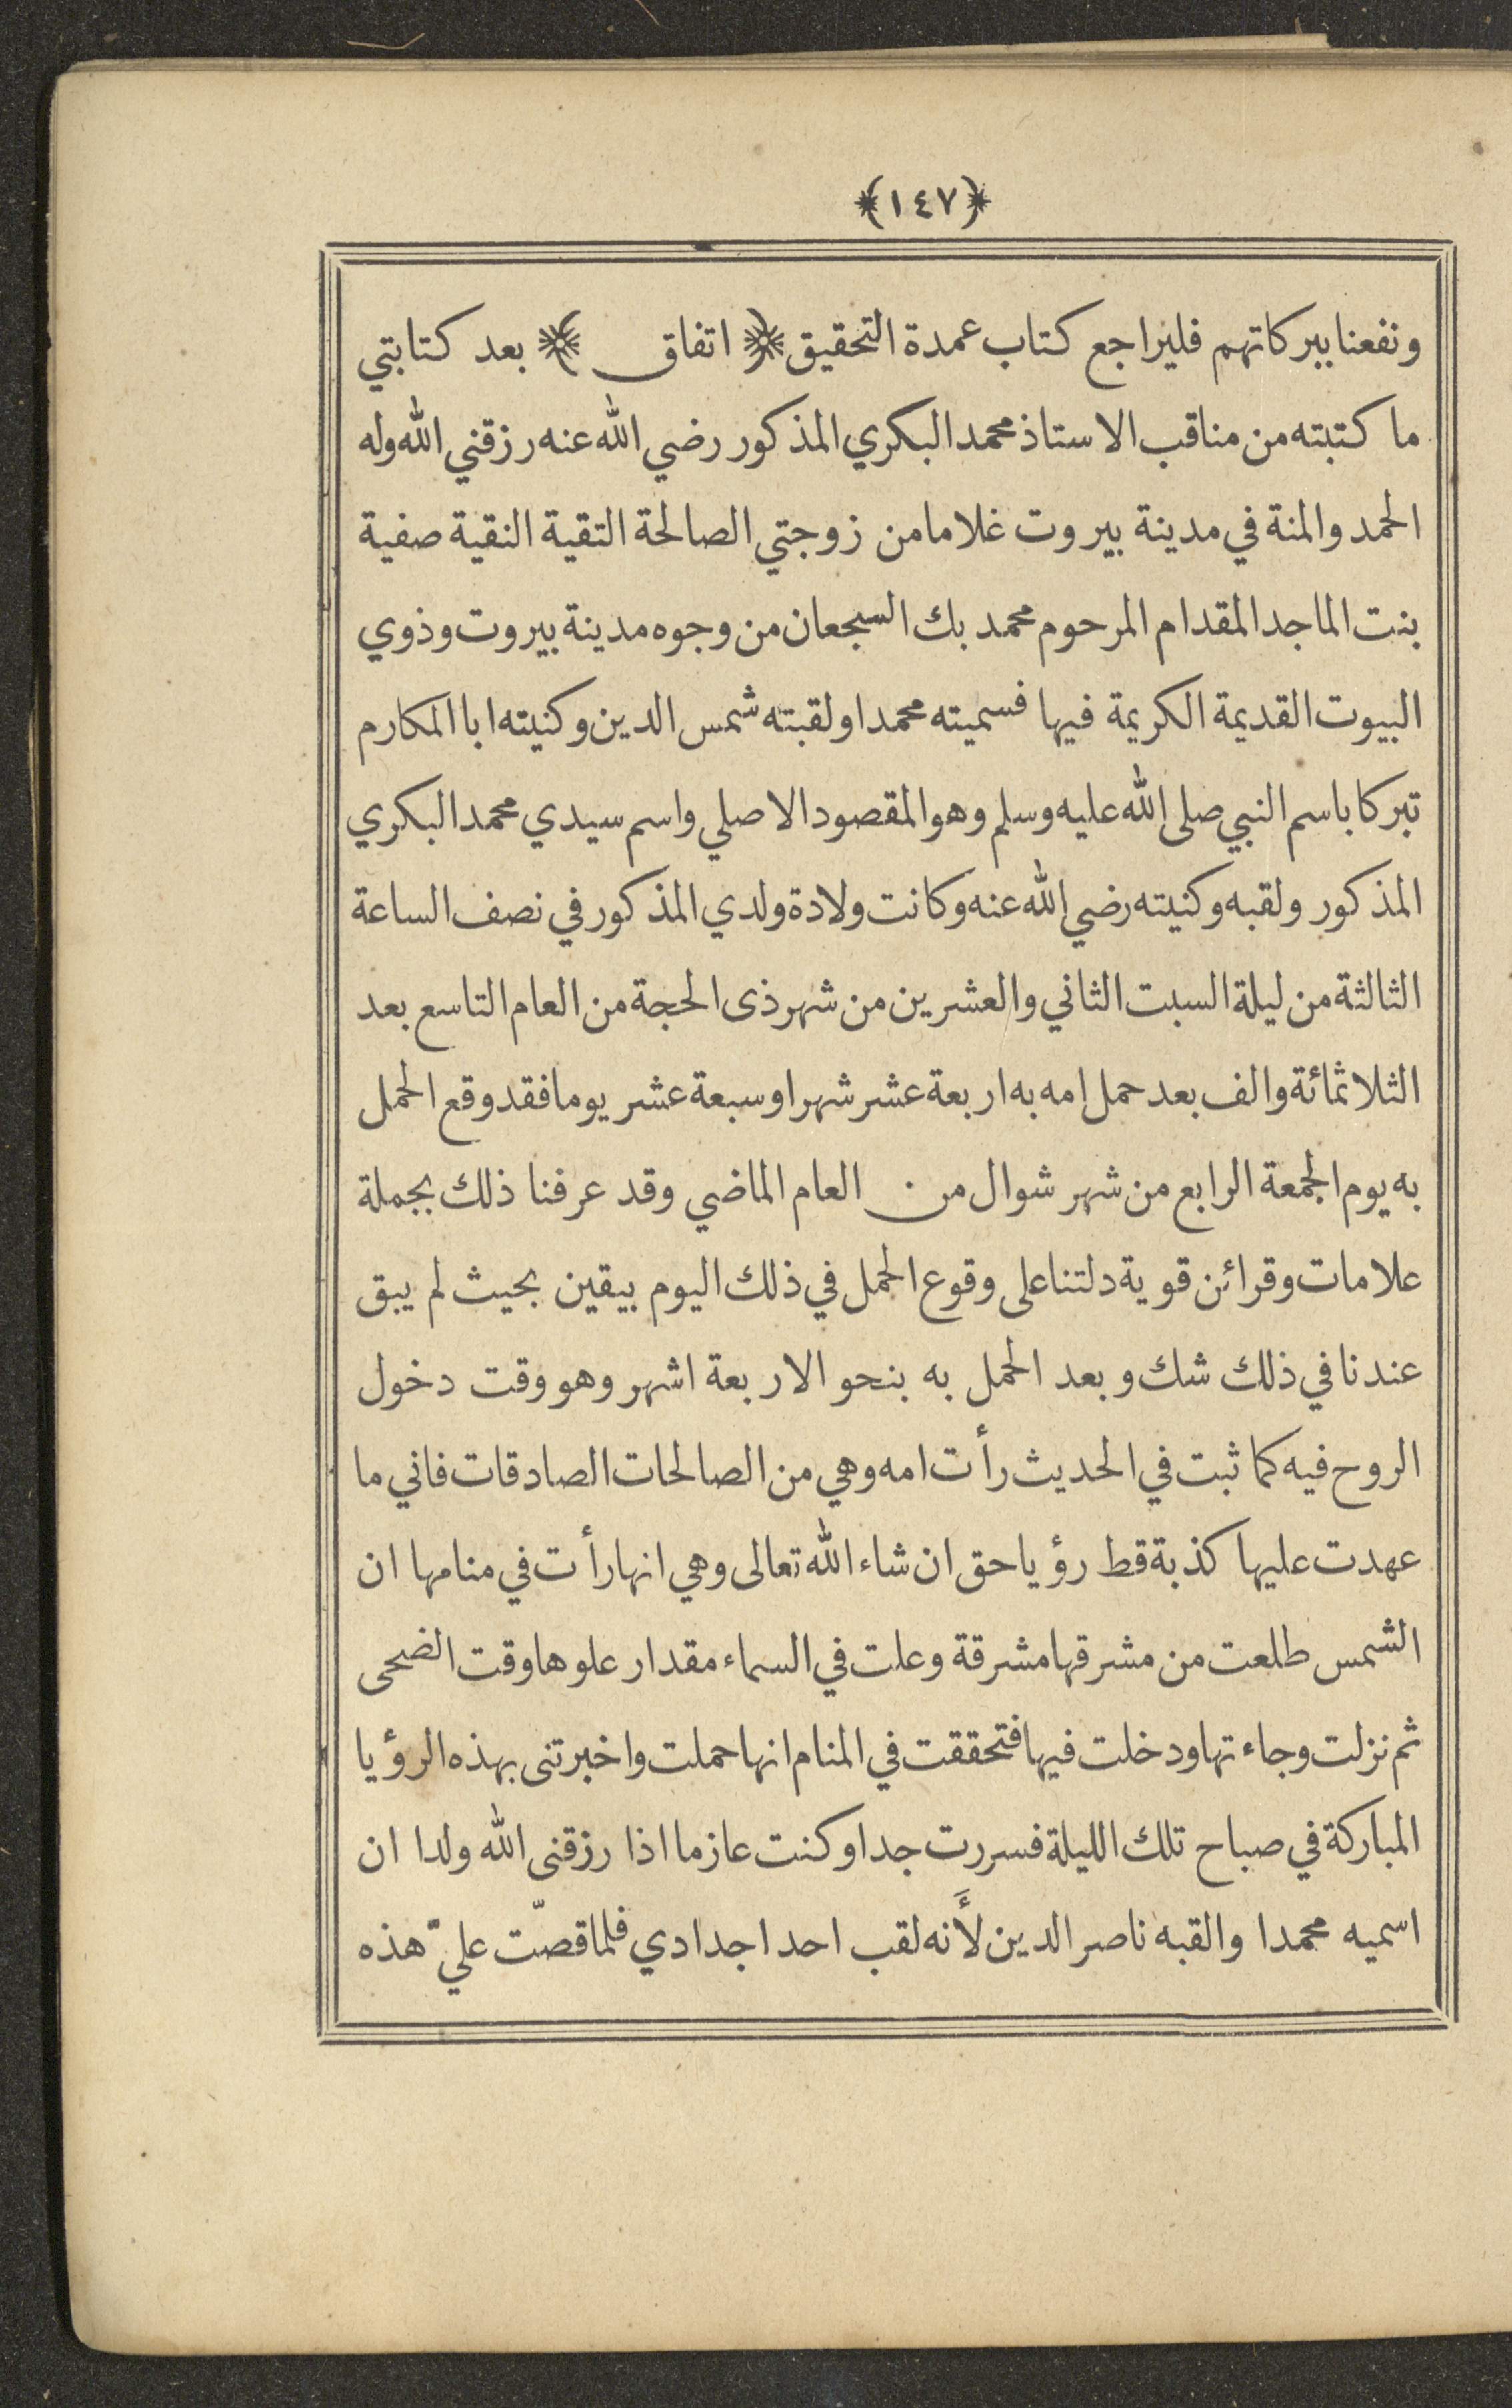 ﴿١٤٧﴾
ونفعنا ببركاتهم فليراجع كتاب عمدة التحقيق ﴿ اتفاق ﴾ بعد كتابتي
ما كتبته من مناقب الاستاذ محمد البكري المذكور رضي الله عنه رزقني الله وله
الحمد والمنة في مدينة بيروت غلاما من زوجتي الصالحة التقية النقية صفية
بنت الماجد المقدام المرحوم محمد بك السجعان من وجوه مدينة بيروت وذوي
البيوت القديمة الكريمة فيها فسميته محمدا ولقبته شمس الدين وكنيته ابا المكارم
تبركا باسم النبي صلى الله عليه وسلم وهو المقصود الاصلي واسم سيدي محمد البكري
المذكور ولقبه وكنيته رضي الله عنه وكانت ولادة ولدي المذكور في نصف الساعة
الثالثة من ليلة السبت الثاني والعشرين من شهر ذى الحجة من العام التاسع بعد
الثلاثمائة والف بعد حمل امه به اربعة عشر شهرا وسبعة عشر يوما فقد وقع الحمل
به يوم الجمعة الرابع من شهر شوال من العام الماضي وقد عرفنا ذلك بجملة
علامات وقرائن قوية دلتنا على وقوع الحمل في ذلك اليوم بيقين بحيث لم يبق
عندنا في ذلك شك وبعد الحمل به بنحو الاربعة اشهر وهو وقت دخول
الروح فيه كما ثبت في الحديث رأت امه وهي من الصالحات الصادقات فاني ما
عهدت عليها كذبة قط رؤيا حق ان شاء الله تعالى وهي انها رأت في منامها ان
الشمس طلعت من مشرقها مشرقة وعلت في السماء مقدار علوها وقت الضحى
ثم نزلت وجاءتها ودخلت فيها فتحققت في المنام انها حملت واخبرتنى بهذه الرؤيا
المباركة في صباح تلك الليلة فسررت جدا وكنت عازما اذا رزقنى الله ولدا ان
اسميه محمدا والقبه ناصر الدين لأَنه لقب احد اجدادي فلما قصّت عليّ هذه